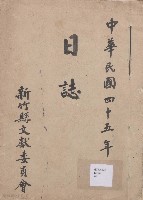 中華民國四十五年
日誌
新竹縣文獻委員會